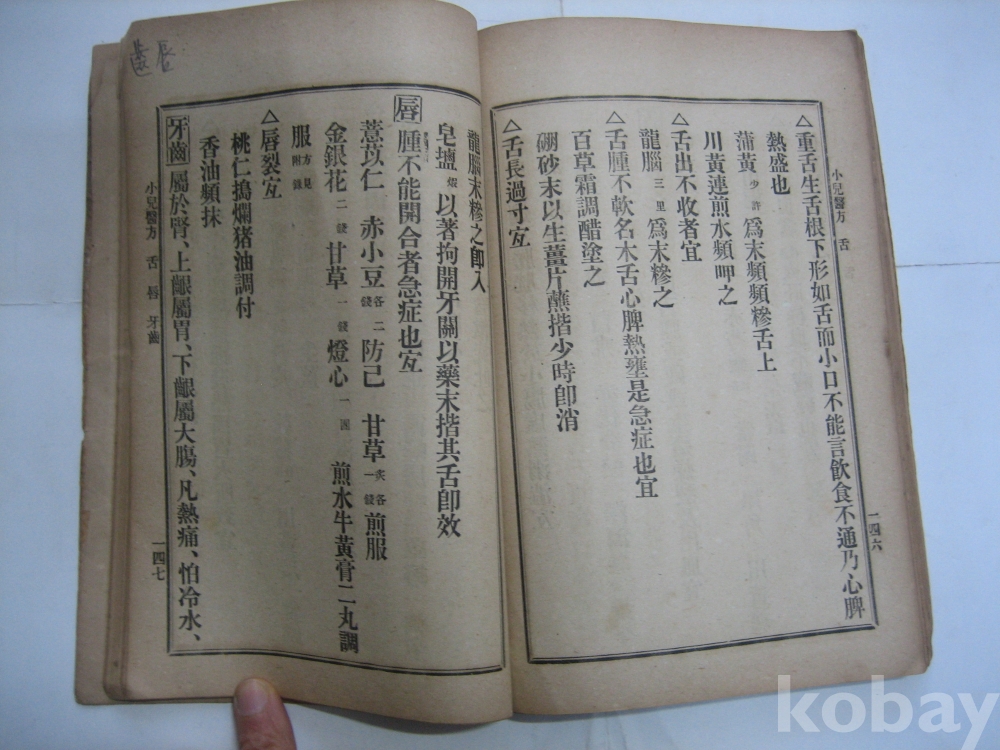 小兒醫方 舌
一四六
△重舌生舌根下形如舌而小口不能言飮食不通乃心脾
熱盛也
蒲黃少許爲末頻頻糝舌上
川黃連煎水頻呷之
△舌出不收者宜
龍腦三里爲末糝之
△舌腫不軟名木舌心脾熱壅是急症也宜
百草霜調醋塗之
硼砂末以生薑片蘸揩少時卽消
△舌長過寸宐
龍腦末糝之卽入
皂塩煆以著拘開牙關以藥末揩其舌卽效
唇 腫不能開合者急症也宐
薏苡仁 赤小豆各二錢 防己 甘草炙各一錢 煎服
金銀花二錢 甘草一錢 燈心一團 煎水牛黃膏二丸調
服方見附錄
△唇裂宐
桃仁搗爛猪油調付
香油頻抹
牙齒 屬於腎、上齦屬胃、下齦屬大腸、凡熱痛、怕冷水、
小兒醫方 舌 唇 牙齒
一四七
kobay